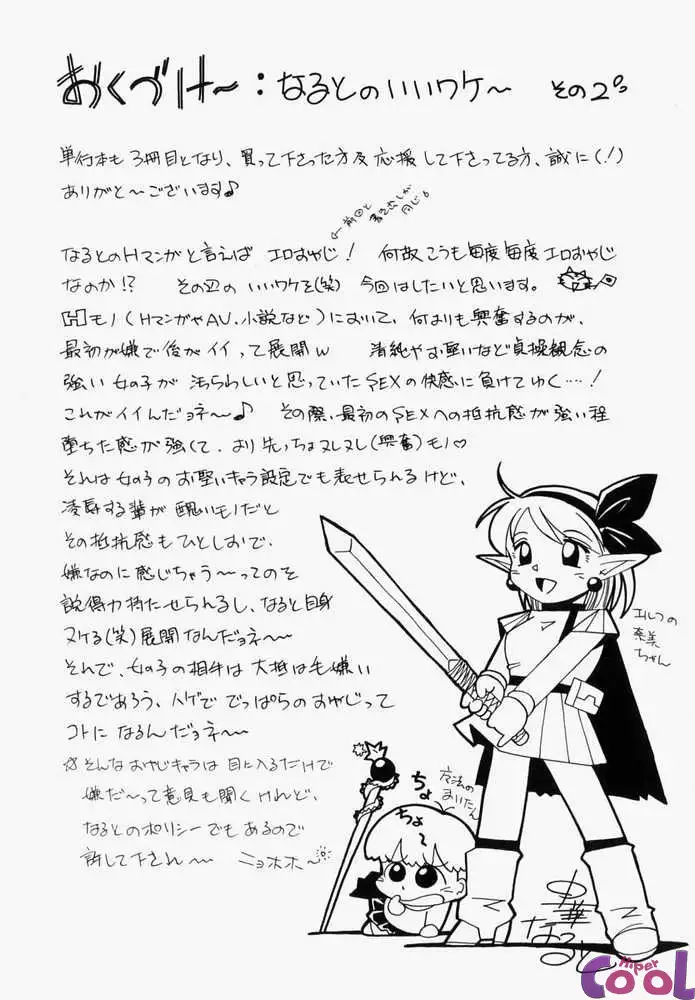 おくづけ〜:なるとのいいワケ〜 その2。
単行本も3冊目となり、買って下さった方及応援して下さってる方、誠に(!)
ありがと〜ございます♪
←前回と書き出しが同じ。
なるとのHマンガと言えば エロおやじ! 何故こうも毎度毎度エロおやじ
なのか!? その辺のいいワケを(笑) 今回はしたいと思います。
Hモノ(HマンガやAV、小説など)において、何よりも興奮するのが、
最初が嫌で後がイイって展開w 清純やお堅いなど貞操観念の
強い女の子が汚らわしいと思っていたSEXの快感に負けてゆく…!
これがイイんだョネ〜♪ その際、最初のSEXへの抵抗感が強い程
堕ちた感が強くて、より先っちょヌレヌレ(興奮)モノ♡
それは女の子のお堅いキャラ設定でも表せられるけど、
凌辱する輩が醜いモノだと
その抵抗感もひとしおで、
嫌なのに感じちゃう〜ってのを
説得力持たせられるし、なると自身
ヌケる(笑)展開なんだョネ〜
それで、女の子の相手は大抵は毛嫌い
するであろう、ハゲででっぱらのおやじって
コトになるんだョネ〜
☆そんなおやじキャラは目に入るだけで
嫌だ〜って意見も聞くけれど、
なるとのポリシーでもあるので
許して下され〜 ニョホホ〜
エルフの
奈美
ちゃん
魔法の
まいたん
ちょ
ちょ〜
中華
なると
Hiper
COOL